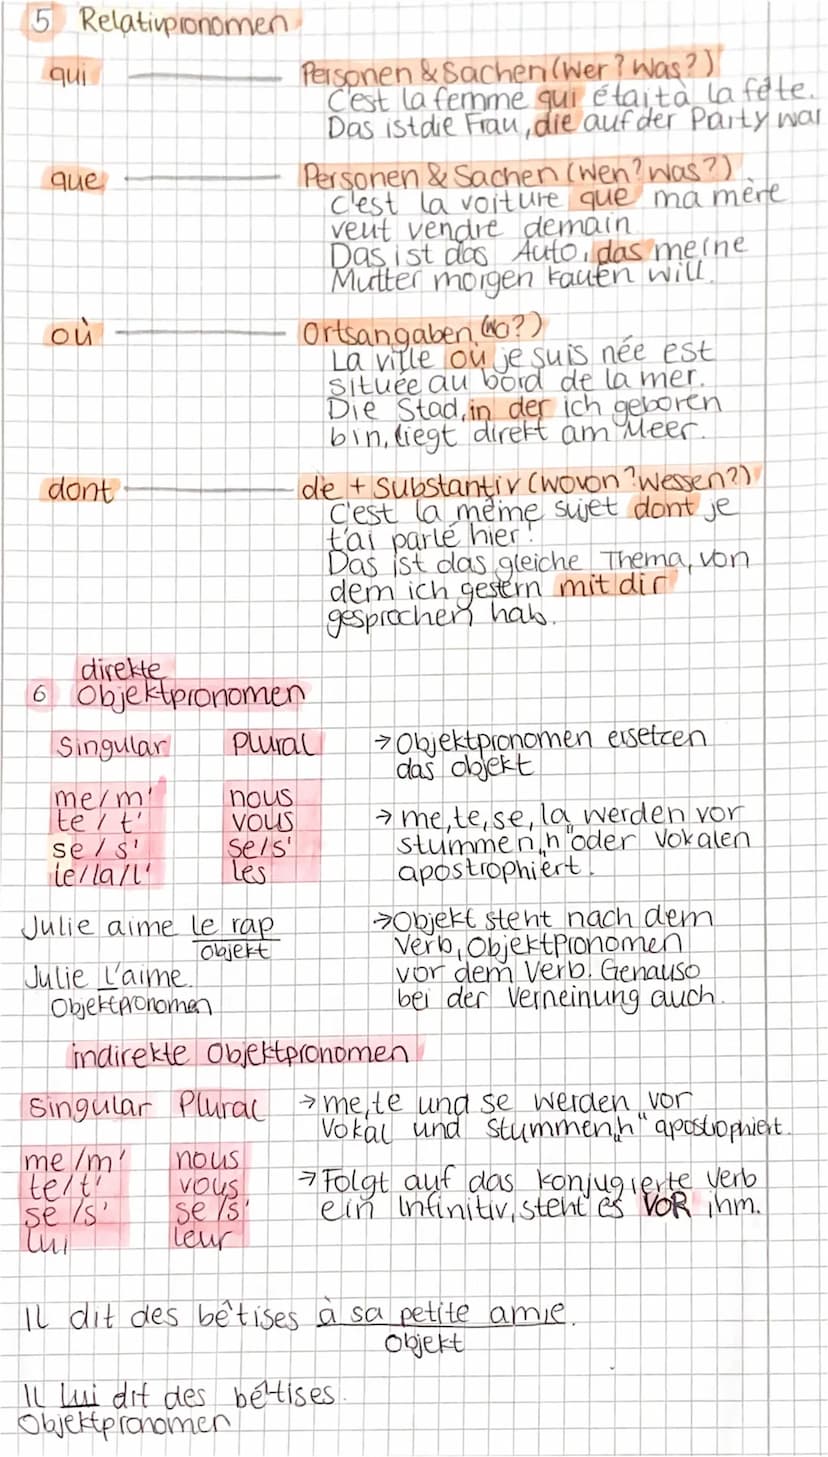 5 Relativpronomen
qui Personen & Sachen (Wer? Was?)
C'est la femme qui était à la fête.
Das ist die Frau, die auf der Party war
que Personen & Sachen (Wen? Was?)
C'est la voiture que ma mère
veut vendre demain
Das ist das Auto, das meine
Mutter morgen kaufen will.
où Ortsangaben (wo?)
La ville où je suis née est
située au bord de la mer.
Die Stad, in der ich geboren
bin, liegt direkt am Meer.
dont de + Substantiv (wovon? Wessen?)
C'est la même sujet dont je
t'ai parlé hier!
Das ist das gleiche Thema, von
dem ich gestern mit dir
gesprochen hab.
direkte
6 Objektpronomen
Singular Plural → Objektpronomen ersetzen
das Objekt
me/m' nous
te/t' vous → me, te, se, la werden vor
se/s' se/s' stummen „h" oder Vokalen
le/la/l' les apostrophiert.
Julie aime le rap → Objekt steht nach dem
Objekt Verb, Objektpronomen
Julie L'aime. vor dem Verb. Genauso
Objektpronomen bei der Verneinung auch.
indirekte Objektpronomen
Singular Plural → me, te und se werden vor
Vokal und stummen „h" apostrophiert.
me/m' nous
te/t' vous → Folgt auf das konjugierte Verb
se/s' se/s' ein Infinitiv, steht es VOR ihm.
lui leur
Il dit des bêtises à sa petite amie.
Objekt
Il lui dit des bêtises.
Objektpronomen